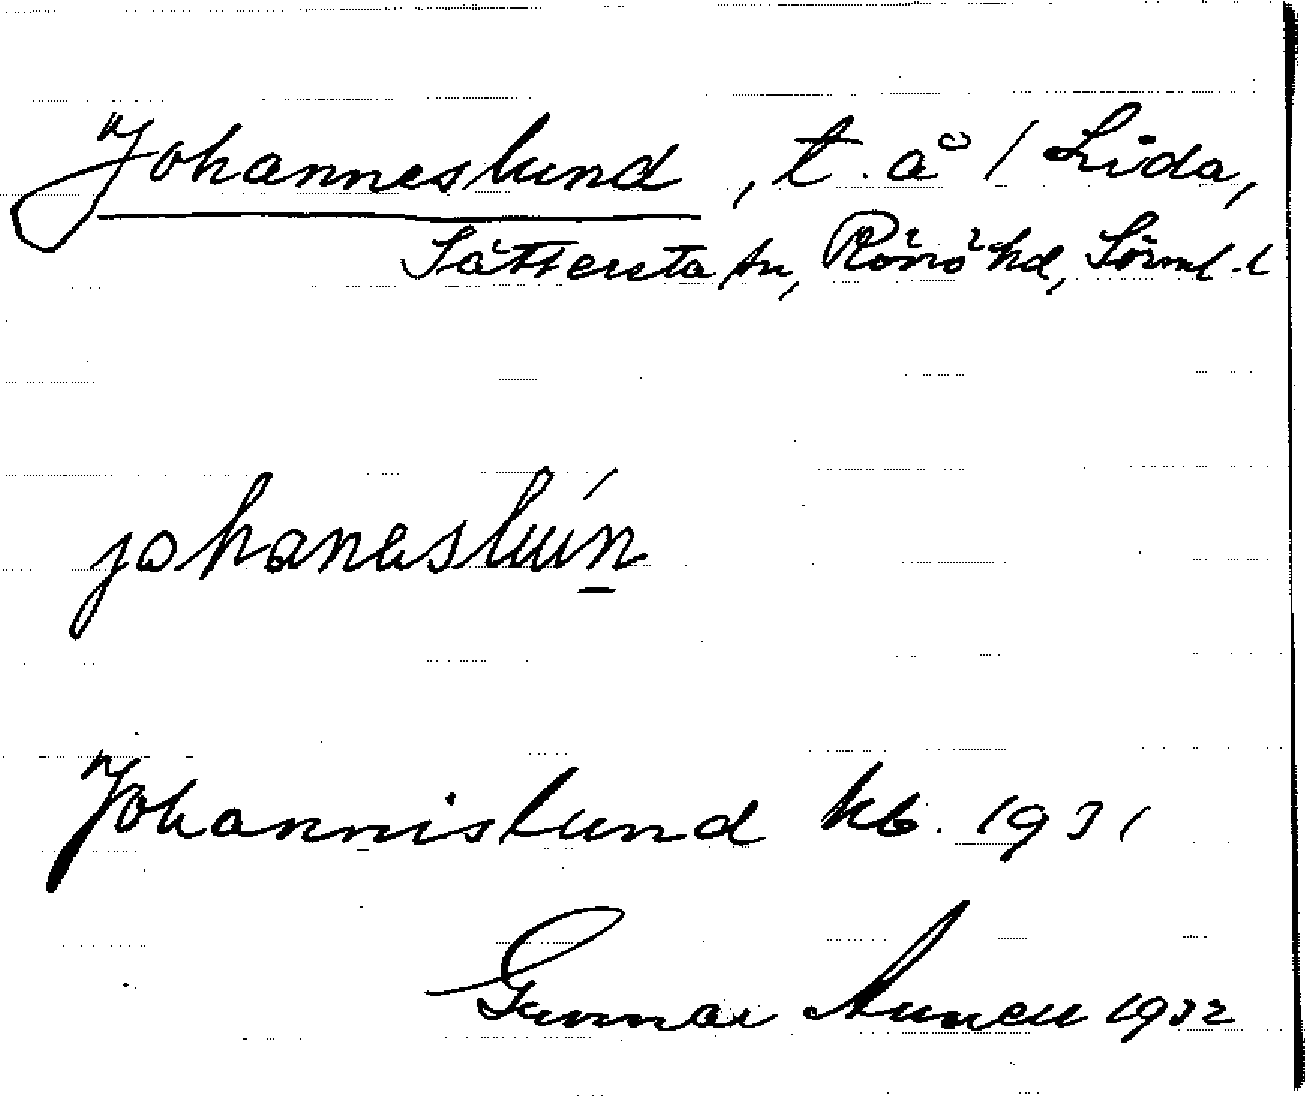 Johanneslund, t. å / Lida,
Sättersta sn, Rönö hd, Sörml. l
johaneslún
Johannislund kb. 1931
Gunnar 1932